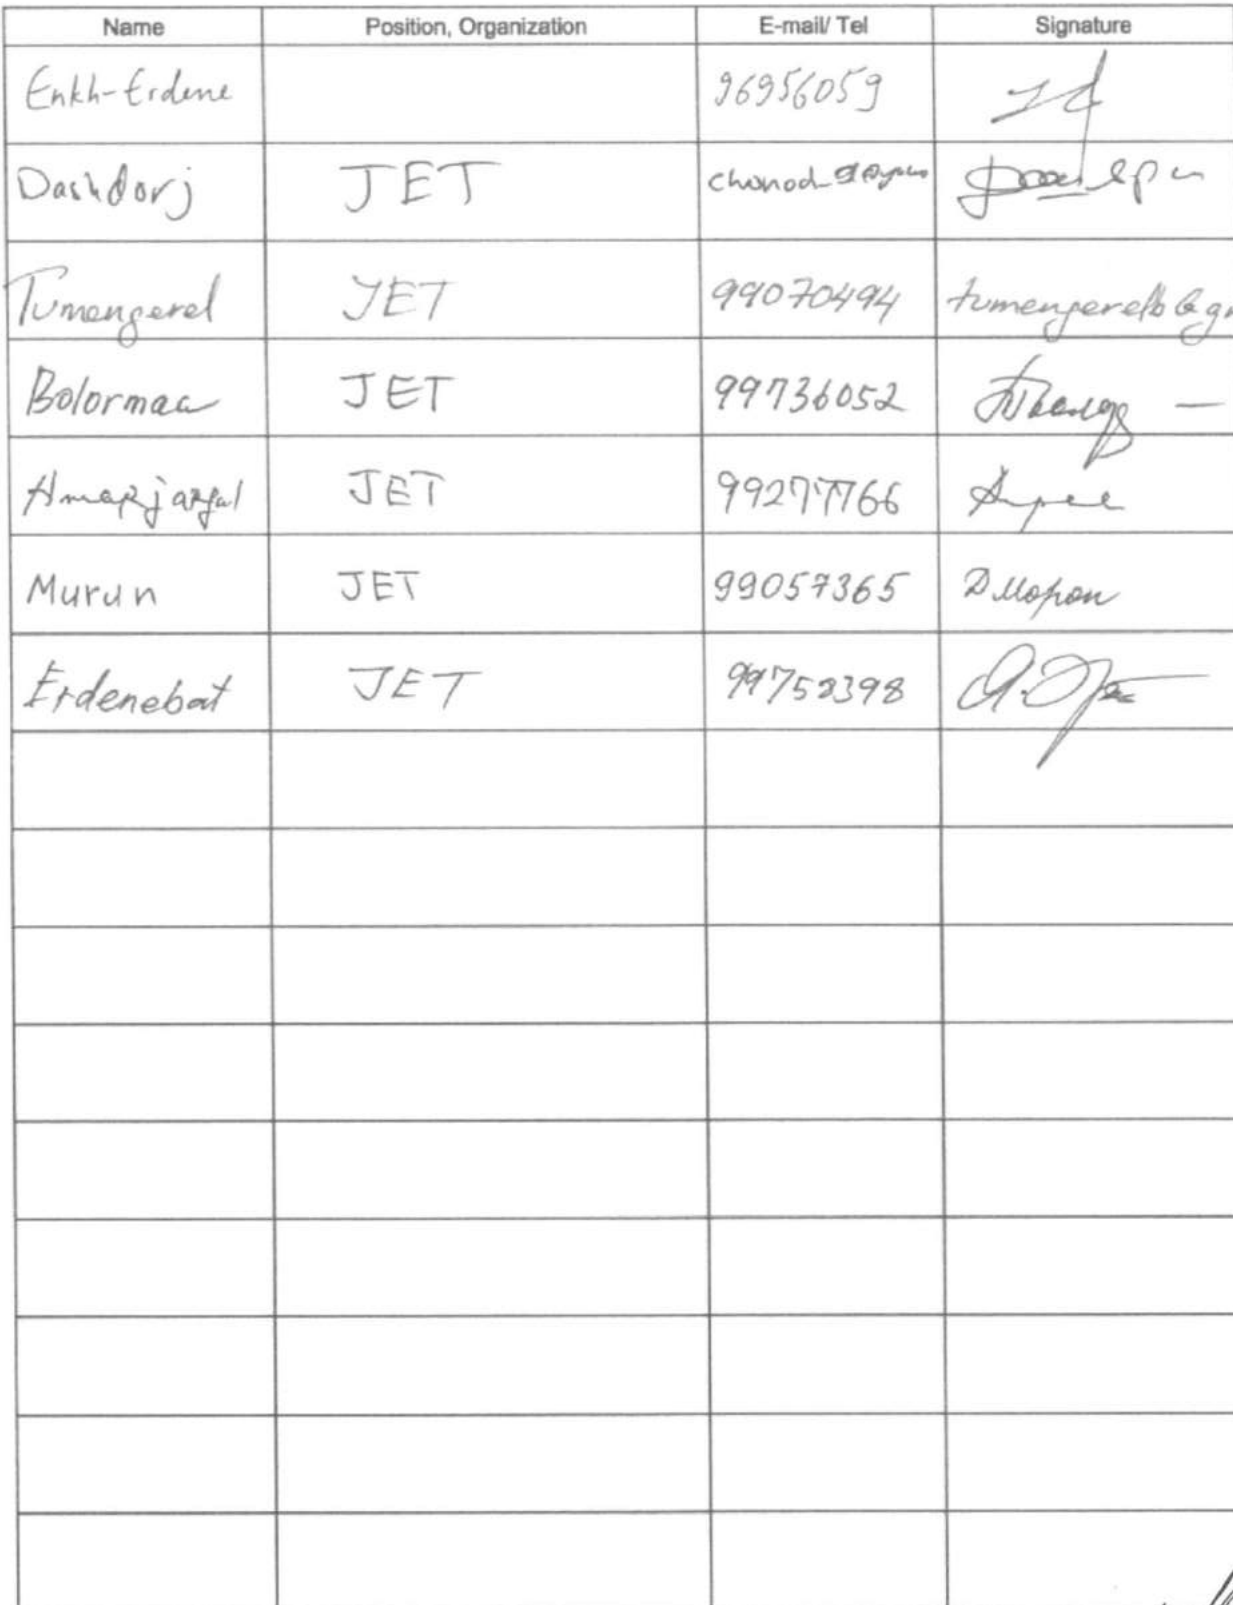 Name Position, Organization E-mail/ Tel Signature
Enkh-Erdene 96956059
Dashdorj JET
Tumengerel JET 99070494
Bolormaa JET 99736052
Amarjargal JET 99277766
Murun JET 99057365 Д Мөрөн
Erdenebat JET 99758398